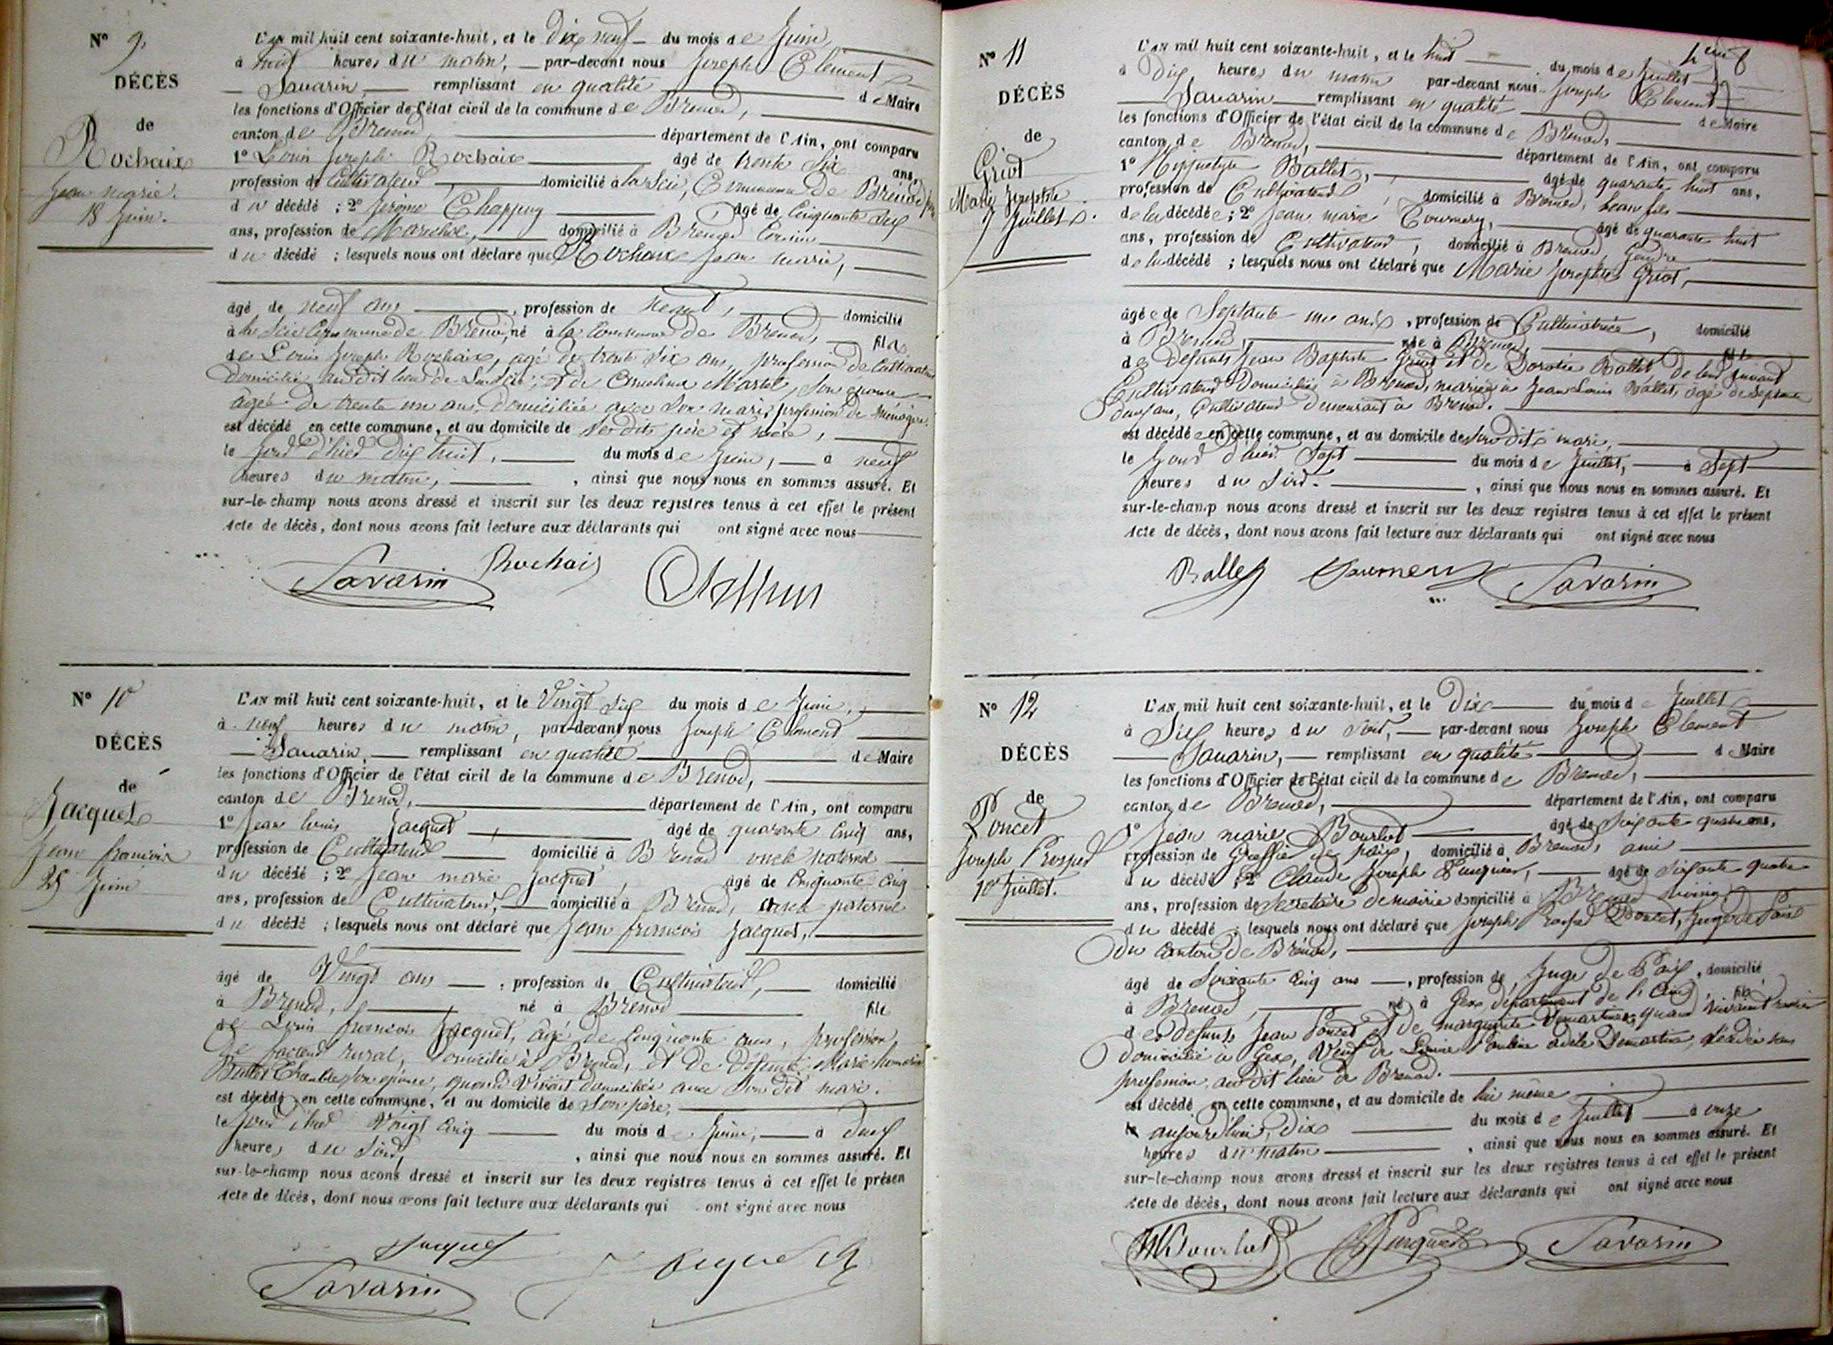 N° 9.
DÉCÈS
de
Rochaix
Jean marie.
18 Juin.
L'AN mil huit cent soixante-huit, et le Dix neuf du mois de Juin,
à neuf heures du matin, par-devant nous Joseph Clément
Savarin, remplissant en qualité de Maire
les fonctions d'Officier de l'état civil de la commune de Brenod,
canton de Brenod, département de l'Ain, ont comparu
1° Louis Joseph Rochaix âgé de trente six ans,
profession de Cultivateur, domicilié à la Scie, Commune de Brénod, père
du décédé ; 2° Jerome Chappuy âgé de Cinquante six
ans, profession de Marechal, domicilié à Brenod Cousin
du décédé ; lesquels nous ont déclaré que Rochaix Jean marie,
âgé de neuf ans, profession de neant, domicilié
à la Scie Commune de Brenod, né à la Commune de Brenod, fils
de Louis Joseph Rochaix, agé de trente six ans, profession de Cultivateur
Domicilié au dit lieu de La Scie, et de Martel, Son epouse
agée de trente un ans, domiciliée avec Son mari, profession de ménagère.
est décédé en cette commune, et au domicile de Ses dits père et mère,
le jour d'hier dix huit, du mois de Juin, à neuf
heures du matin, , ainsi que nous nous en sommes assuré. Et
sur-le-champ nous avons dressé et inscrit sur les deux registres tenus à cet effet le présent
Acte de décès, dont nous avons fait lecture aux déclarants qui ont signé avec nous
Rochaix
Savarin
N° 10
DÉCÈS
de
Jacquet
Jean françois
25 Juin
L'AN mil huit cent soixante-huit, et le Vingt six du mois de Juin,
à neuf heures du matin, par-devant nous Joseph Clément
Savarin, remplissant en qualité de Maire
les fonctions d'Officier de l'état civil de la commune de Brenod,
canton de Brenod, département de l'Ain, ont comparu
1° Jean Louis Jacquet, âgé de quarante Cinq ans,
profession de Cultivateur domicilié à Brenod oncle paternel
du décédé ; 2° Jean marie Jacquet, âgé de Cinquante Cinq
ans, profession de Cultivateur, domicilié à Brenod, oncle paternel
du décédé ; lesquels nous ont déclaré que Jean françois Jacquet,
âgé de Vingt ans, profession de Cultivateur, domicilié
à Brenod, né à Brenod fils
de Louis françois Jacquet, agé de Cinquante ans, profession
de facteur rural, domicilié à Brenod, et de défunte Marie
Ballet Son épouse, quand Vivait domiciliée avec Son dit mari.
est décédé en cette commune, et au domicile de Son père,
le jour d'hier Vingt Cinq du mois de Juin, à deux
heures du Soir, , ainsi que nous nous en sommes assuré. Et
sur-le-champ nous avons dressé et inscrit sur les deux registres tenus à cet effet le présen
Acte de décès, dont nous avons fait lecture aux déclarants qui ont signé avec nous
Jacquet
Savarin
N° 11
DÉCÈS
de
Griot
Marie Josephte
7 Juillet.
L'AN mil huit cent soixante-huit, et le huit du mois de Juillet
à Dix heures du matin par-devant nous Joseph Clément
Savarin remplissant en qualité de Maire
les fonctions d'Officier de l'état civil de la commune de Brenod,
canton de Brenod, département de l'Ain, ont comparu
1° Hippolyte Ballet, âgé de quarante huit ans,
profession de Cultivateur, domicilié à Brenod, beau fils
de la décédée ; 2° Jean marie Tournery, âgé de quarante huit
ans, profession de Cultivateur, domicilié à Brenod, Gendre
de la décédé ; lesquels nous ont déclaré que Marie Josephte Griot,
âgée de Septante un ans, profession de Cultivatrice, domicilié
à Brenod, née à Brenod, fille
des defunts Jean Baptiste Griot et de Dorotée Ballet de leur vivant
Cultivateurs Domiciliés à Brenod, mariée à Jean Louis Ballet, agé de Septante
deux ans, Cultivateur demeurant à Brenod.
est décédée en cette commune, et au domicile de son dit mari,
le Jour d'hier Sept du mois de Juillet, à Sept
heures du Soir. , ainsi que nous nous en sommes assuré. Et
sur-le-champ nous avons dressé et inscrit sur les deux registres tenus à cet effet le présent
Acte de décès, dont nous avons fait lecture aux déclarants qui ont signé avec nous
Ballet Savarin
N° 12
DÉCÈS
de
Poncet
Joseph Prosper
10 Juillet.
L'AN mil huit cent soixante-huit, et le Dix du mois de Juillet
à Six heures du Soir, par-devant nous Joseph Clément
Savarin, remplissant en qualité de Maire
les fonctions d'Officier de l'état civil de la commune de Brenod,
canton de Brenod, département de l'Ain, ont comparu
1° Jean marie Bourbot âgé de Soixante quatre ans,
profession de Greffier de paix, domicilié à Brenod, ami
du décédé ; 2° Claude Joseph âgé de Soixante quatre
ans, profession de Secretaire de mairie domicilié à Brenod voisin
du décédé ; lesquels nous ont déclaré que Joseph Prosper Poncet, Juge de Paix
du canton de Brénod,
âgé de Soixante Cinq ans, profession de Juge de Paix, domicilié
à Brenod, né à Gex département de l'Ain, fils
des defunts Jean Poncet et de marguerite Demartine quand vivaient
domicilié à Gex, Veuf de Pauline adèle Demartine, décédée sans
profession, au dit lieu de Brenod.
est décédé en cette commune, et au domicile de lui même
le aujourd'hui, dix du mois de Juillet à onze
heures du matin , ainsi que nous nous en sommes assuré. Et
sur-le-champ nous avons dressé et inscrit sur les deux registres tenus à cet effet le présent
Acte de décès, dont nous avons fait lecture aux déclarants qui ont signé avec nous
Savarin